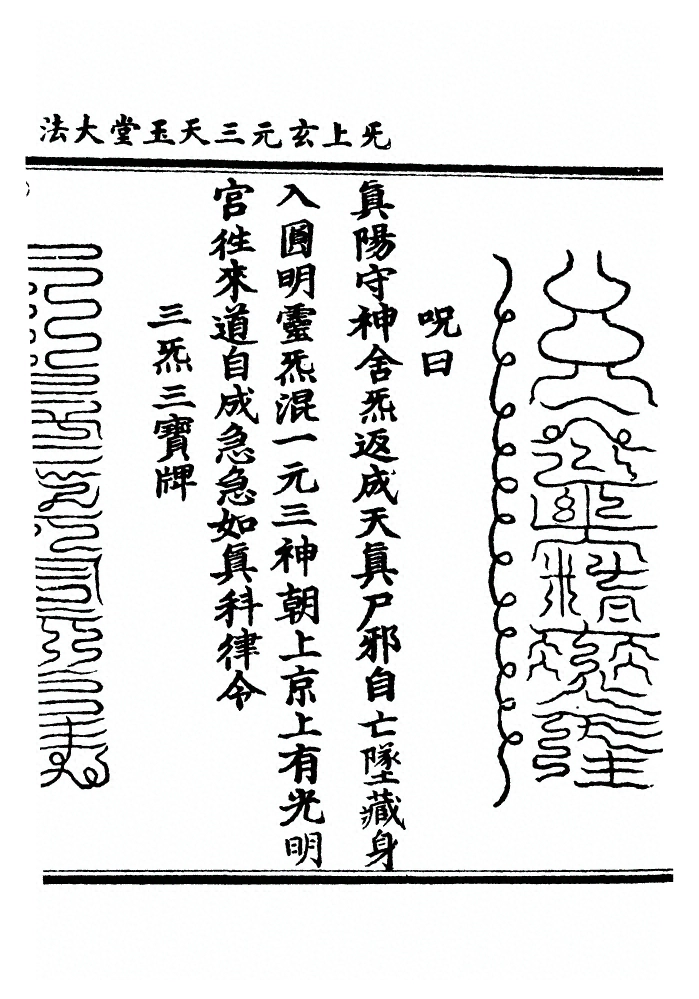 旡上玄元三天玉堂大法
呪曰
眞陽守神舍炁返成天眞尸邪自亡墜藏身
入圓明靈炁混一元三神朝上京上有光明
宮徃來道自成急急如眞科律令
三炁三寶牌